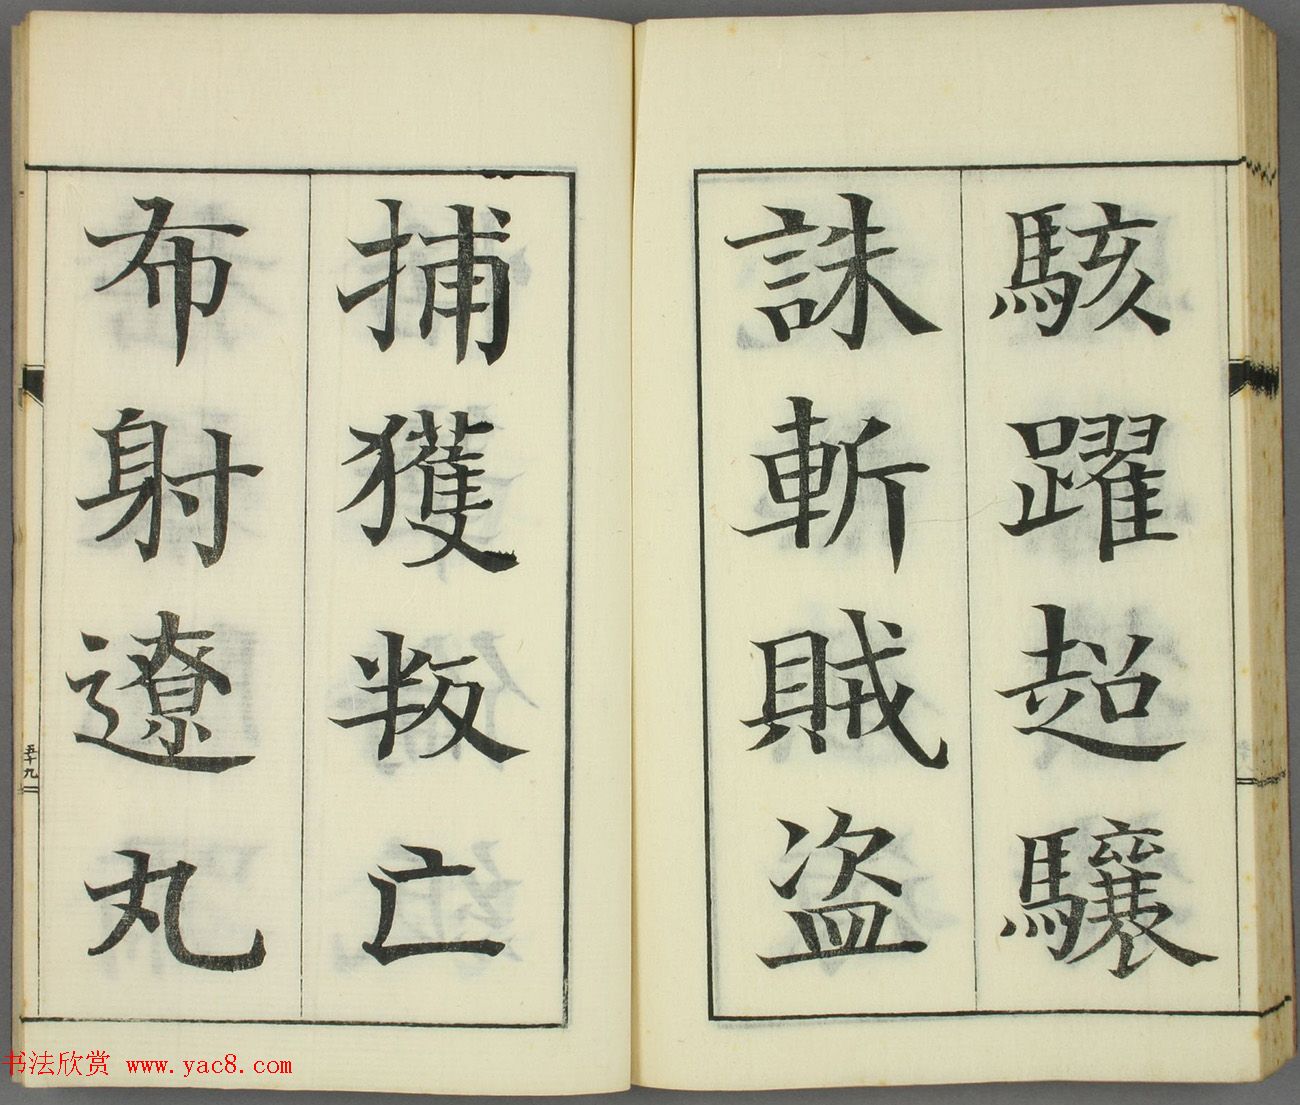 駭躍超驤
誅斬賊盗
捕獲叛亡
布射遼丸
五十九
书法欣赏 www.yac8.com